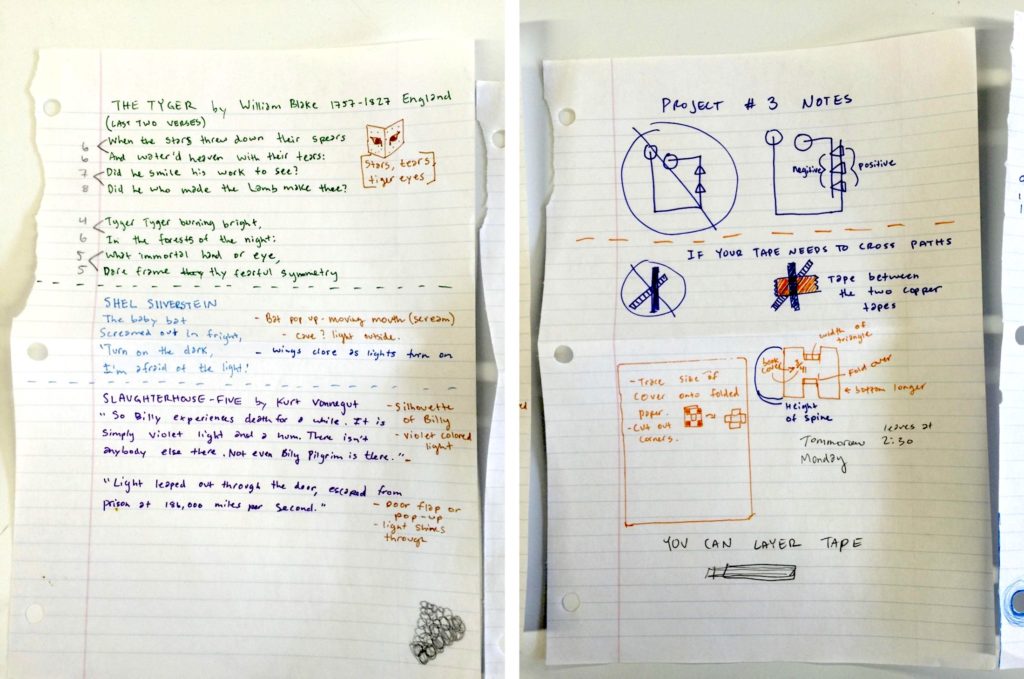 THE TYGER by William Blake 1757-1827 England
(LAST TWO VERSES)
6 When the stars threw down their spears
6 And water'd heaven with their tears:
7 Did he smile his work to see?
8 Did he who made the Lamb make thee?
stars, tears
tiger eyes
4 Tyger Tyger burning bright,
6 In the forests of the night:
5 What immortal hand or eye,
5 Dare frame thy fearful symmetry
SHEL SILVERSTEIN
The baby bat
Screamed out in fright,
"Turn on the dark,
I'm afraid of the light!
- Bat pop up - moving mouth (scream)
- cave? light outside.
- wings close as lights turn on
SLAUGHTERHOUSE-FIVE by Kurt Vonnegut
"So Billy experiences death for a while. It is
simply violet light and a hum. There isn't
anybody else there. Not even Billy Pilgrim is there."
- Silhouette
of Billy
- violet colored
light
"Light leaped out through the door, escaped from
prison at 186,000 miles per second."
- Door flap or
pop-up
- light shines
through
PROJECT # 3 NOTES
negitive
positive
IF YOUR TAPE NEEDS TO CROSS PATHS
Tape between
the two copper
tapes
width of
triangle
book
cover
fold over
bottom longer
Height
of spine
- Trace size of
cover onto folded
paper.
- Cut out
corners.
Tommorow
leaves at
2:30
Monday
YOU CAN LAYER TAPE